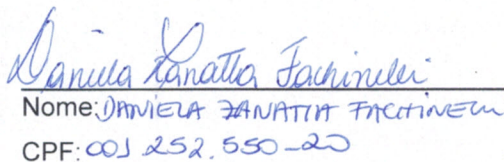 Daniela Zanatta Fachinelli
Nome: DANIELA ZANATTA FACHINELLI
CPF: 001.252.550-20